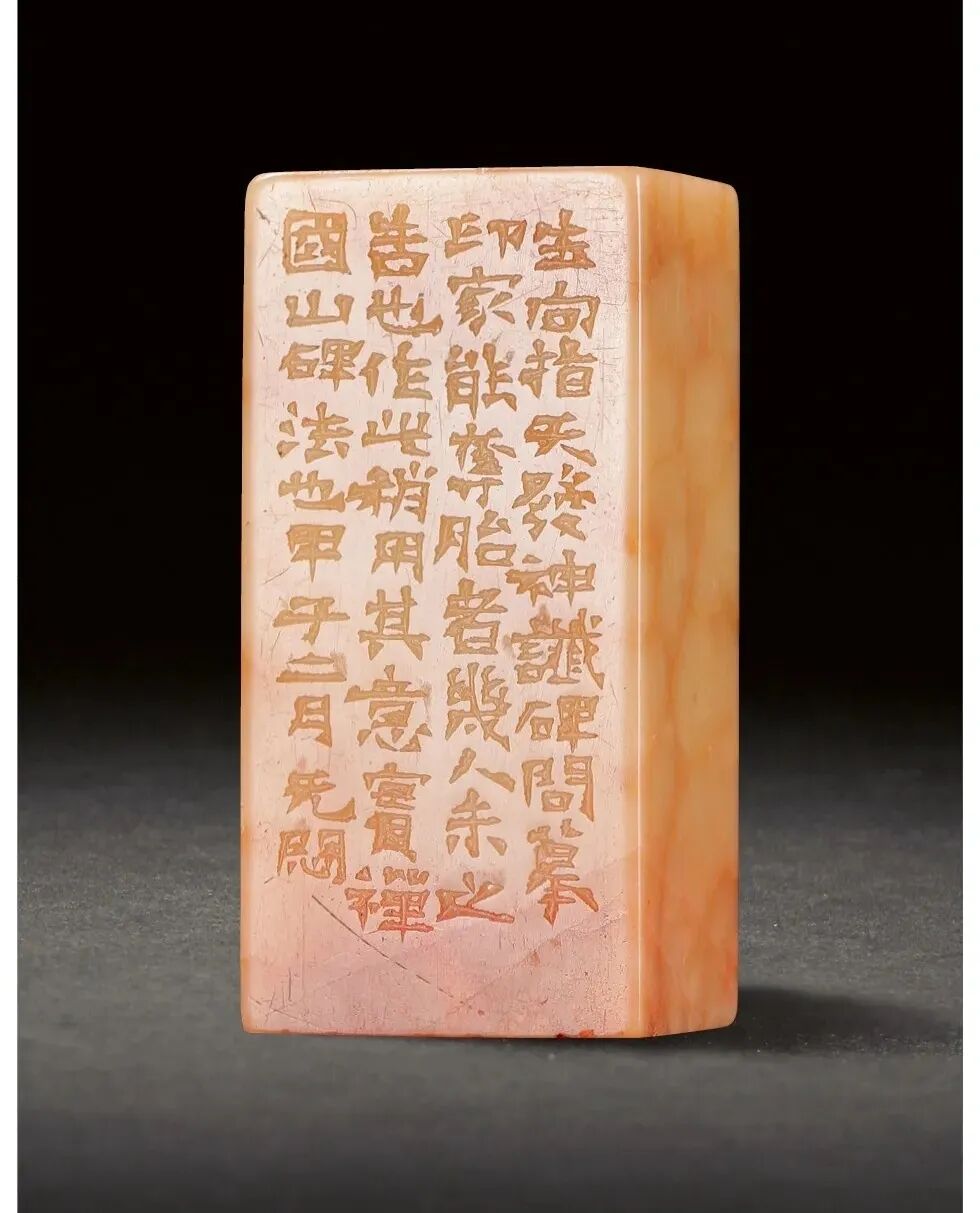 生向指天發神讖碑問摹
印家能奪胎者幾人未之
告也作此稍用其意實禪
國山碑法也甲子二月无悶